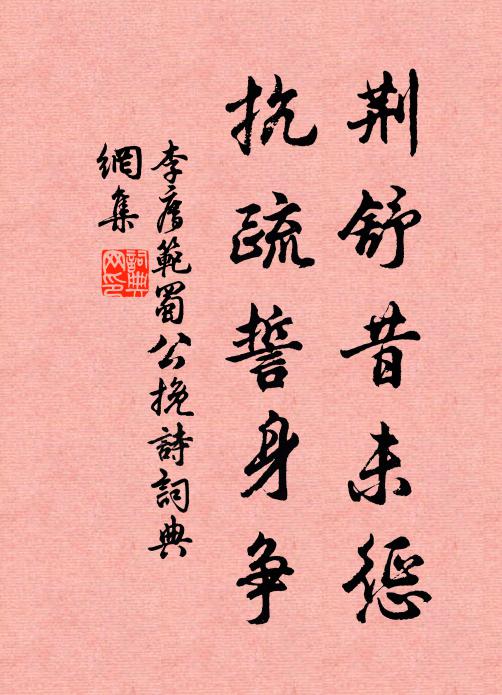 荆舒昔未惩
抗疏誓身争
李廌範蜀公挽詩詞典
網集
詞典网印